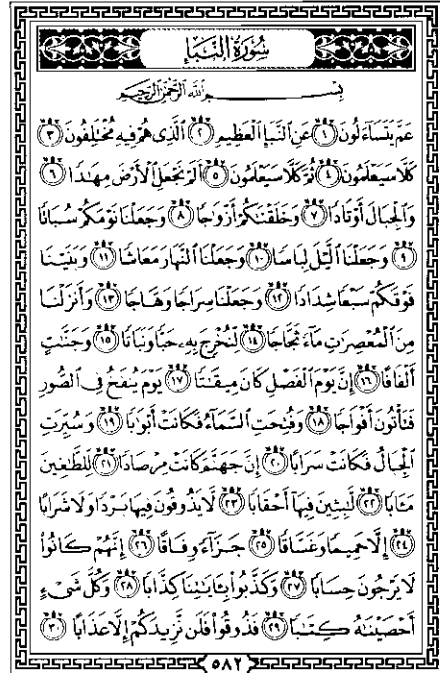 سُورَةُ النَّبَإِ
بِسْمِ ٱللَّهِ ٱلرَّحْمَٰنِ ٱلرَّحِيمِ
عَمَّ يَتَسَآءَلُونَ ١ عَنِ ٱلنَّبَإِ ٱلْعَظِيمِ ٢ ٱلَّذِى هُمْ فِيهِ مُخْتَلِفُونَ ٣
كَلَّا سَيَعْلَمُونَ ٤ ثُمَّ كَلَّا سَيَعْلَمُونَ ٥ أَلَمْ نَجْعَلِ ٱلْأَرْضَ مِهَٰدًا ٦
وَٱلْجِبَالَ أَوْتَادًا ٧ وَخَلَقْنَٰكُمْ أَزْوَٰجًا ٨ وَجَعَلْنَا نَوْمَكُمْ سُبَاتًا
٩ وَجَعَلْنَا ٱلَّيْلَ لِبَاسًا ١٠ وَجَعَلْنَا ٱلنَّهَارَ مَعَاشًا ١١ وَبَنَيْنَا
فَوْقَكُمْ سَبْعًا شِدَادًا ١٢ وَجَعَلْنَا سِرَاجًا وَهَّاجًا ١٣ وَأَنزَلْنَا
مِنَ ٱلْمُعْصِرَٰتِ مَآءً ثَجَّاجًا ١٤ لِّنُخْرِجَ بِهِۦ حَبًّا وَنَبَاتًا ١٥ وَجَنَّٰتٍ
أَلْفَافًا ١٦ إِنَّ يَوْمَ ٱلْفَصْلِ كَانَ مِيقَٰتًا ١٧ يَوْمَ يُنفَخُ فِى ٱلصُّورِ
فَتَأْتُونَ أَفْوَاجًا ١٨ وَفُتِحَتِ ٱلسَّمَآءُ فَكَانَتْ أَبْوَٰبًا ١٩ وَسُيِّرَتِ
ٱلْجِبَالُ فَكَانَتْ سَرَابًا ٢٠ إِنَّ جَهَنَّمَ كَانَتْ مِرْصَادًا ٢١ لِّلطَّٰغِينَ
مَـَٔابًا ٢٢ لَّٰبِثِينَ فِيهَآ أَحْقَابًا ٢٣ لَّا يَذُوقُونَ فِيهَا بَرْدًا وَلَا شَرَابًا
٢٤ إِلَّا حَمِيمًا وَغَسَّاقًا ٢٥ جَزَآءً وِفَاقًا ٢٦ إِنَّهُمْ كَانُوا۟
لَا يَرْجُونَ حِسَابًا ٢٧ وَكَذَّبُوا۟ بِـَٔايَٰتِنَا كِذَّابًا ٢٨ وَكُلَّ شَىْءٍ
أَحْصَيْنَٰهُ كِتَٰبًا ٢٩ فَذُوقُوا۟ فَلَن نَّزِيدَكُمْ إِلَّا عَذَابًا ٣٠
٥٨٢